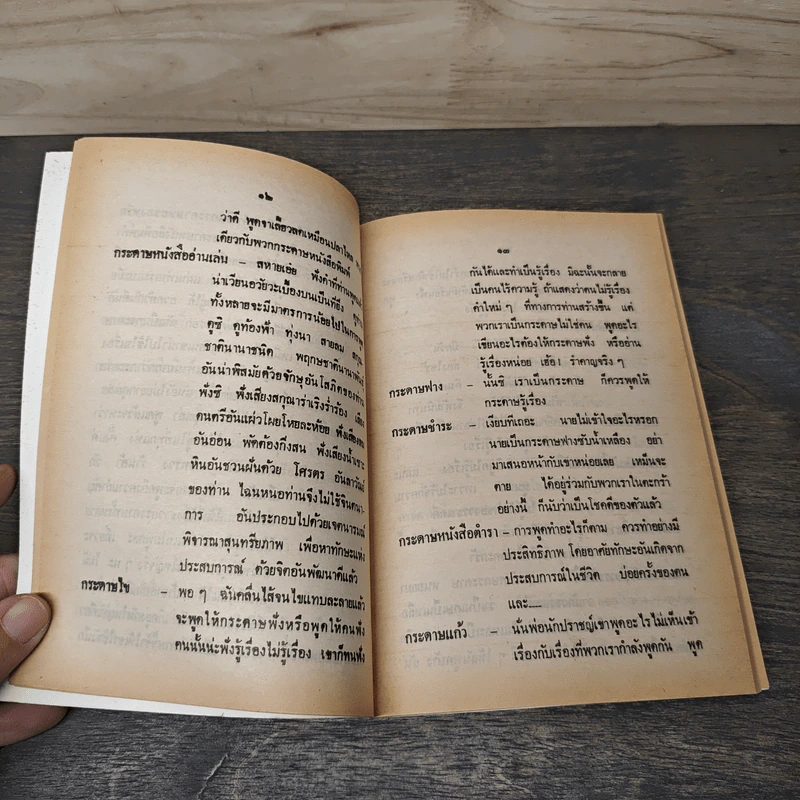 ๑๒
ว่าดี พูดจาเลื้อยลดเหมือนปลาไหล
เดียวกับพวกกระดาษหนังสือพิมพ์
กระดาษหนังสืออ่านเล่น – สหายเอ๋ย ฟังคำที่ท่านพูด
น่าเวียนอวัยวะเบื้องบนเป็นที่ยิ่ง
ทั้งหลายจะมีมาตรการน้อยไปในการ
ดูซิ ดูท้องฟ้า ทุ่งนา สายลม
ชาตินานาชนิด พฤกษชาตินานาพันธุ์
อันน่าพิสมัยด้วยจักษุอันโสภิตของท่าน
ฟังซิ ฟังเสียงสกุณาร่ำเริงร่ำร้อง เสียง
ดนตรีอันแผ่วโผยโหยละห้อย ฟังเสียงลม
อันอ่อน พัดต้องกิ่งสน ฟังเสียงน้ำเซาะ
หินอันชวนฝันด้วย โศรตร อันลาวัณย์
ของท่าน ไฉนหนอท่านจึงไม่ใช้จินตนา-
การ อันประกอบไปด้วยเจตนารมณ์
พิจารณาสุนทรียภาพ เพื่อหาทักษะแห่ง
ประสบการณ์ ด้วยจิตอันพัฒนาดีแล้ว
กระดาษไข – พอ ๆ ฉันคลื่นไส้จนไขแทบละลายแล้ว
จะพูดให้กระดาษฟังหรือพูดให้คนฟัง
คนนั้นน่ะฟังรู้เรื่องไม่รู้เรื่อง เขาก็ทนฟัง
๑๓
กันได้และทำเป็นรู้เรื่อง มิฉะนั้นจะกลาย
เป็นคนไร้ความรู้ ถ้าแสดงว่าตนไม่รู้เรื่อง
คำใหม่ ๆ ที่ทางการท่านสร้างขึ้น แต่
พวกเราเป็นกระดาษไม่ใช่คน พูดอะไร
เขียนอะไรต้องให้กระดาษฟัง หรืออ่าน
รู้เรื่องหน่อย เฮ้อ! รำคาญจริง ๆ
กระดาษฟาง – นั้นซิ เราเป็นกระดาษ ก็ควรพูดให้
กระดาษรู้เรื่อง
กระดาษชำระ – เงียบทีเถอะ นายไม่เข้าใจอะไรหรอก
นายเป็นกระดาษฟางซับน้ำเหลือง อย่า
มาเสนอหน้ากับเขาหน่อยเลย เหม็นจะ
ตาย ได้อยู่ร่วมกับพวกเราในตะกร้า
อย่างนี้ ก็นับว่าเป็นโชคดีของตัวแล้ว
กระดาษหนังสือตำรา – การพูดทำอะไรก็ตาม ควรทำอย่างมี
ประสิทธิภาพ โดยอาศัยทักษะอันเกิดจาก
ประสบการณ์ในชีวิต บ่อยครั้งของตน
และ.....
กระดาษแก้ว – นั่นพ่อนักปราชญ์เขาพูดอะไรไม่เห็นเข้า
เรื่องกับเรื่องที่พวกเรากำลังพูดกัน พูด